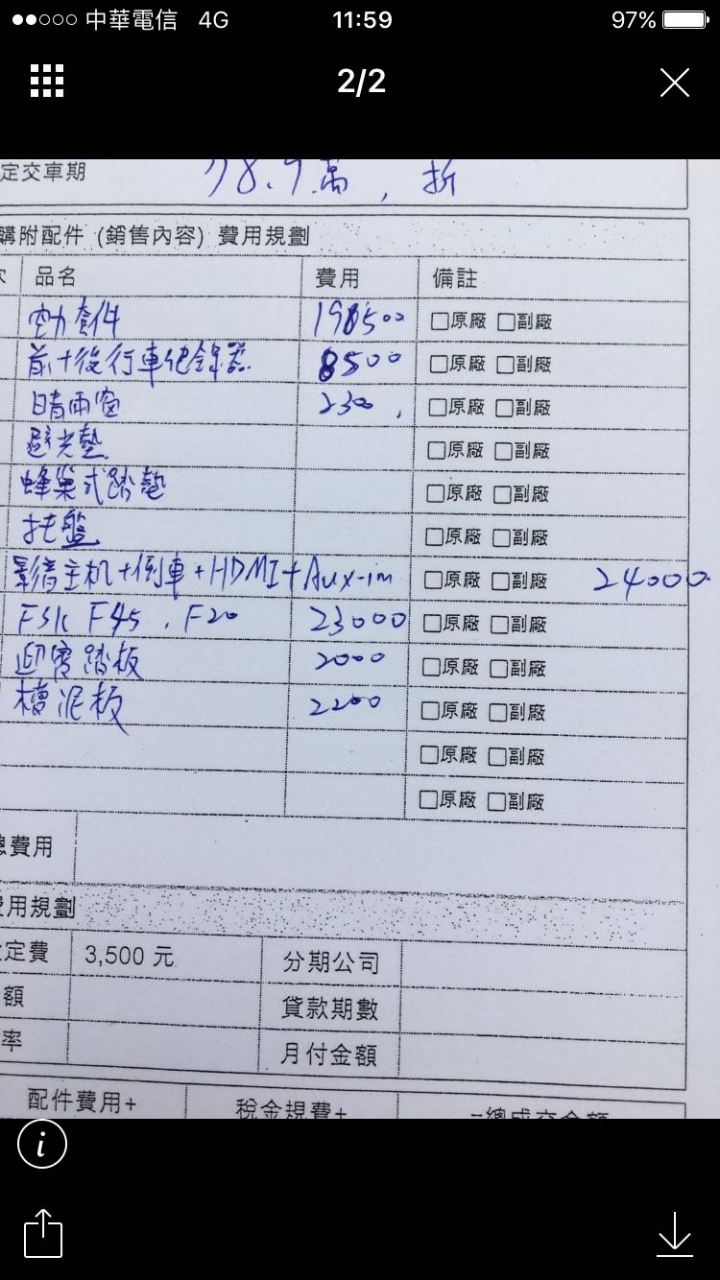 中華電信 4G 11:59 97%
2/2
定交車期 78.9萬, 折
購附配件 (銷售內容) 費用規劃
品名 費用 備註
套件 198500 □原廠 □副廠
前+後行車紀錄器 8500 □原廠 □副廠
晴雨窗 2300, □原廠 □副廠
避光墊 □原廠 □副廠
蜂巢式踏墊 □原廠 □副廠
托盤 □原廠 □副廠
影音主机+倒車+HDMI+Aux-im □原廠 □副廠 24000
FSK F45, F20 23000 □原廠 □副廠
迎賓踏板 2000 □原廠 □副廠
檔泥板 2200 □原廠 □副廠
□原廠 □副廠
□原廠 □副廠
總費用
費用規劃
定費 3,500 元 分期公司
額 貸款期數
率 月付金額
配件費用+ 稅金規費+ =總成交金額